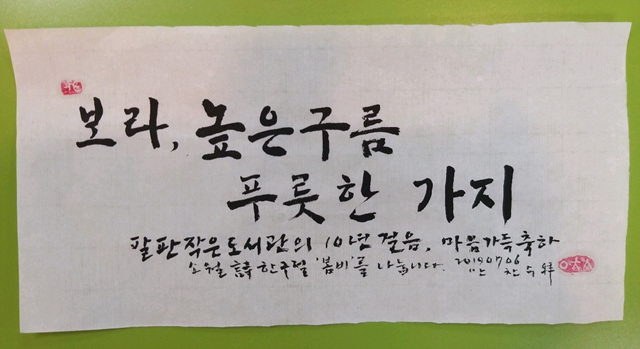 보라, 높은구름
푸릇한 가지
팔판작은도서관의 10년 걸음, 마음가득축하
소월 詩 한구절 '봄비'를 나눕니다. 20190706